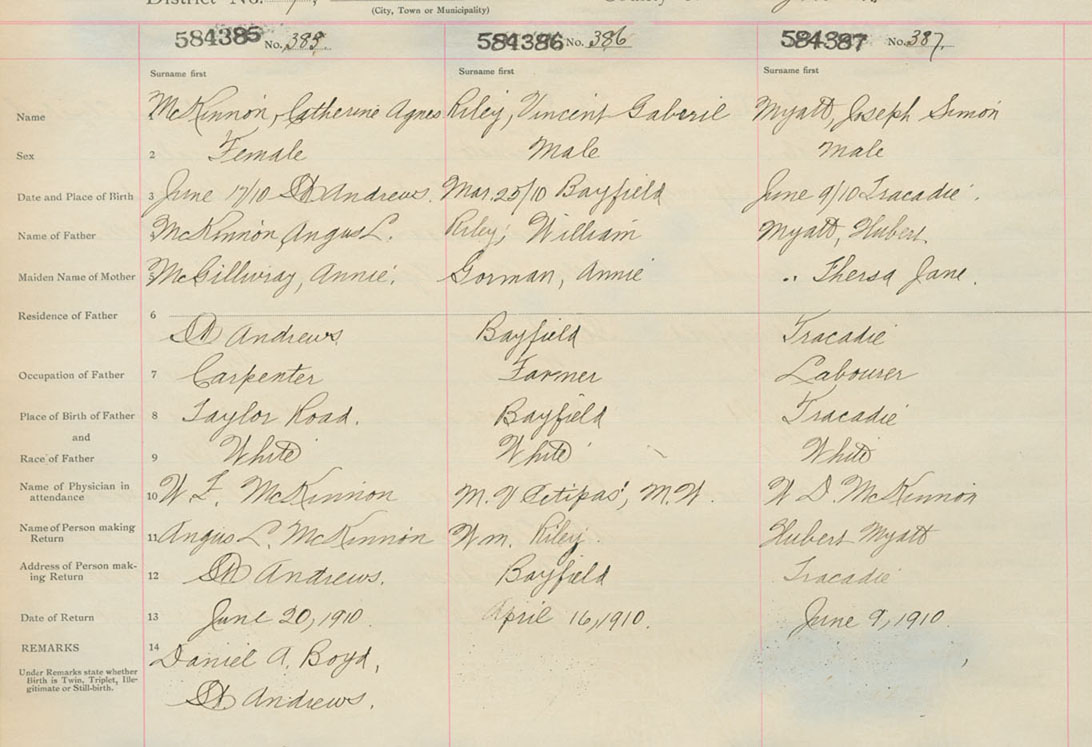 District No.
(City, Town or Municipality)
584385 No. 385 584386 No. 386 584387 No. 387
Surname first Surname first Surname first
Name McKinnon, Catherine Agnes Riley, Vincent Gaberil Myatt, Joseph Simon
Sex 2 Female Male Male
Date and Place of Birth 3 June 17/10 St Andrews. Mar. 25/10 Bayfield June 9/10 Tracadie.
Name of Father McKinnon Angus L. Riley, William Myatt, Hubert
Maiden Name of Mother 5 McGillivray, Annie. Gorman, Annie " Thersa Jane.
Residence of Father 6
St Andrews Bayfield Tracadie
Occupation of Father 7 Carpenter Farmer Labourer
Place of Birth of Father 8 Taylor Road. Bayfield Tracadie
and
Race of Father 9 White White White
Name of Physician in
attendance 10 W. F. McKinnon M. V Petipas, M.W. W D. McKinnon
Name of Person making
Return 11 Angus L. McKinnon Wm. Riley. Hubert Myatt
Address of Person mak-
ing Return 12 St Andrews. Bayfield Tracadie
Date of Return 13 June 20, 1910 April 16, 1910. June 9, 1910
REMARKS 14 Daniel A. Boyd,
Under Remarks state whether
Birth is Twin, Triplet, Ille-
gitimate or Still-birth.
St Andrews.